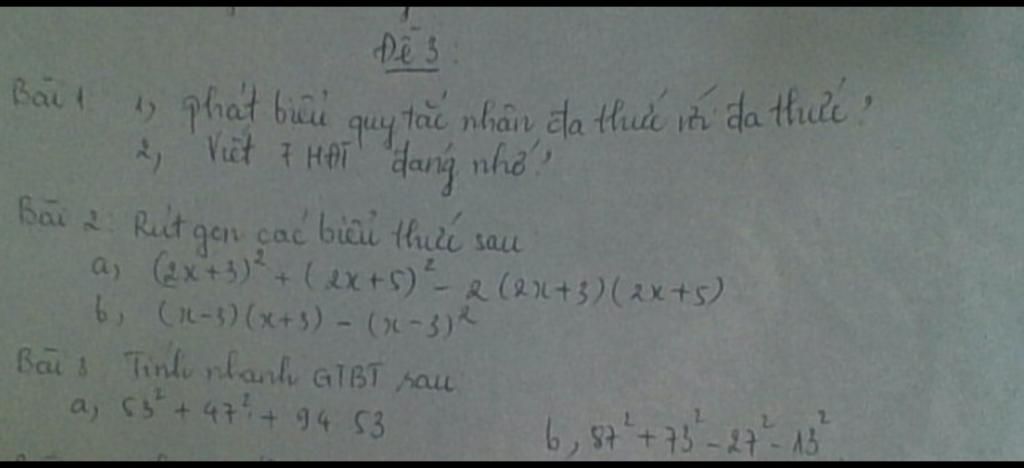 Đề 3:
Bài 1 1, phát biểu quy tắc nhân đa thức với đa thức?
2, Viết 7 HĐT đáng nhớ?
Bài 2: Rút gọn các biểu thức sau
a, (2x+3)² + (2x+5)² - 2(2x+3)(2x+5)
b, (x-3)(x+3) - (x-3)²
Bài 3 Tính nhanh GTBT sau
a, 53² + 47² + 94 53
b, 87² + 73² - 27² - 13²